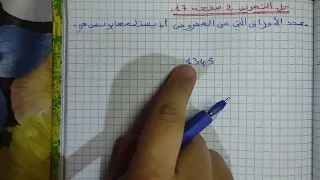 حل التمرين 2 صفحة 17.
عدد الأوراق التي من المفروض أن يستعملها يونس هي
1345